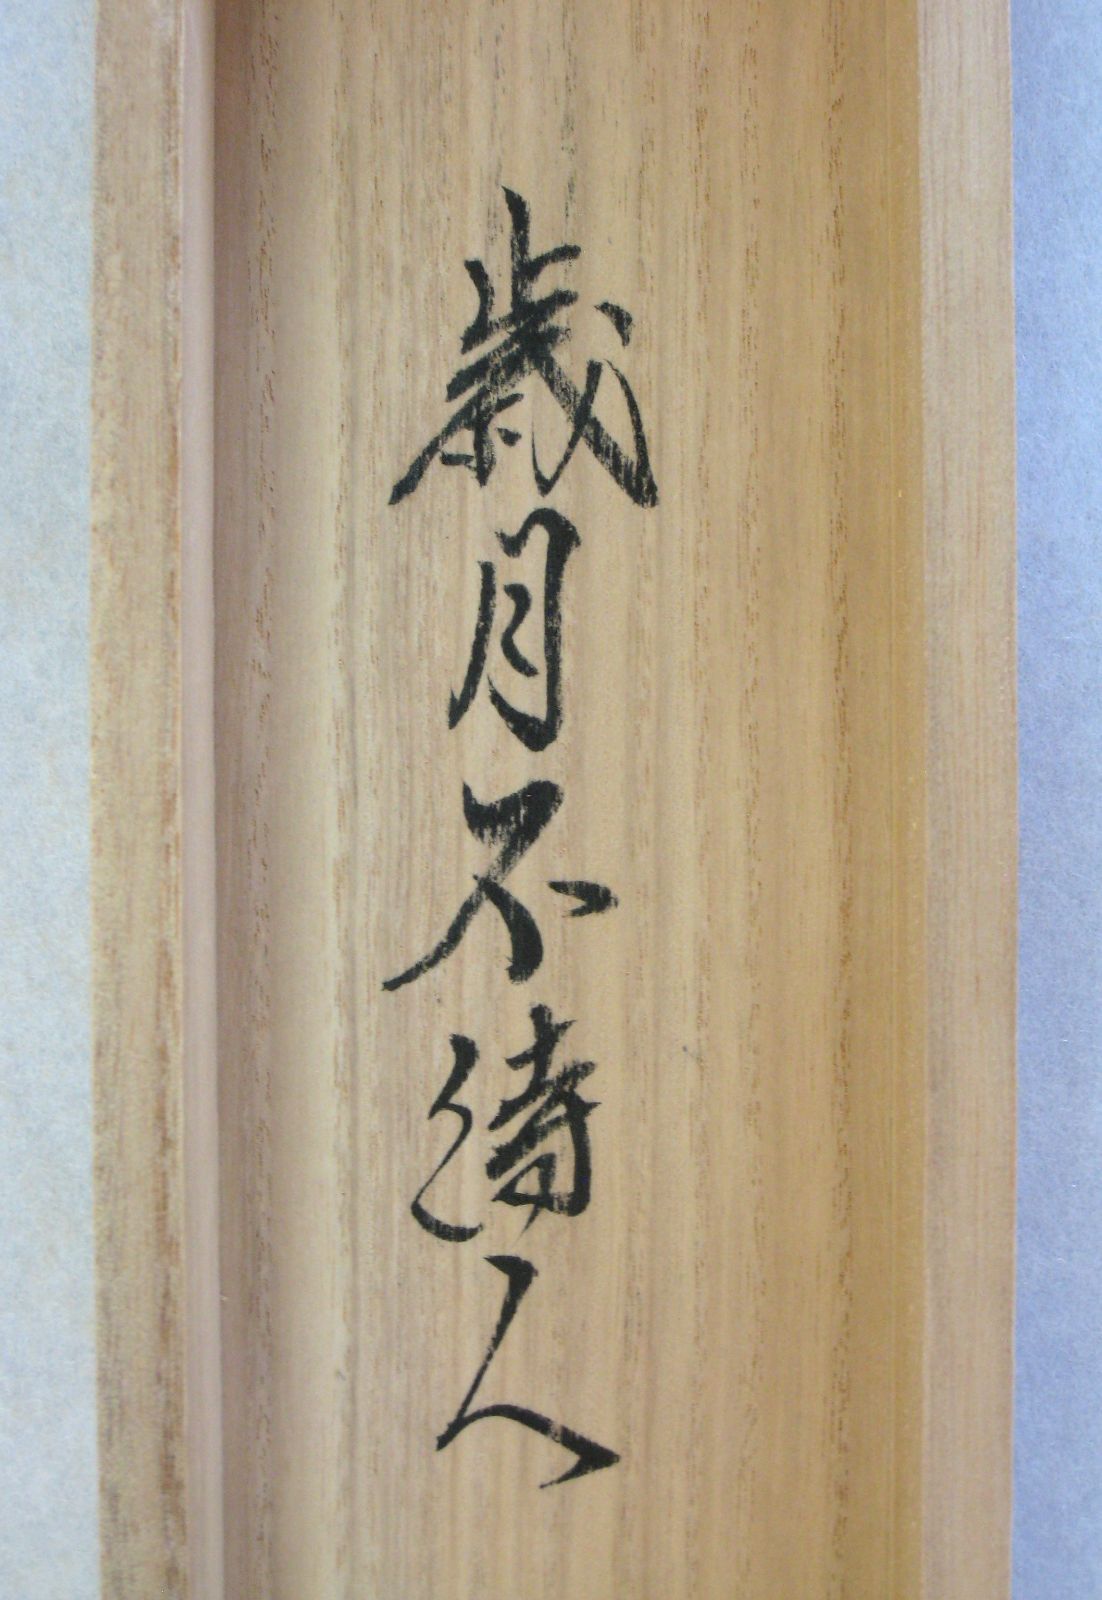 歳月不待人